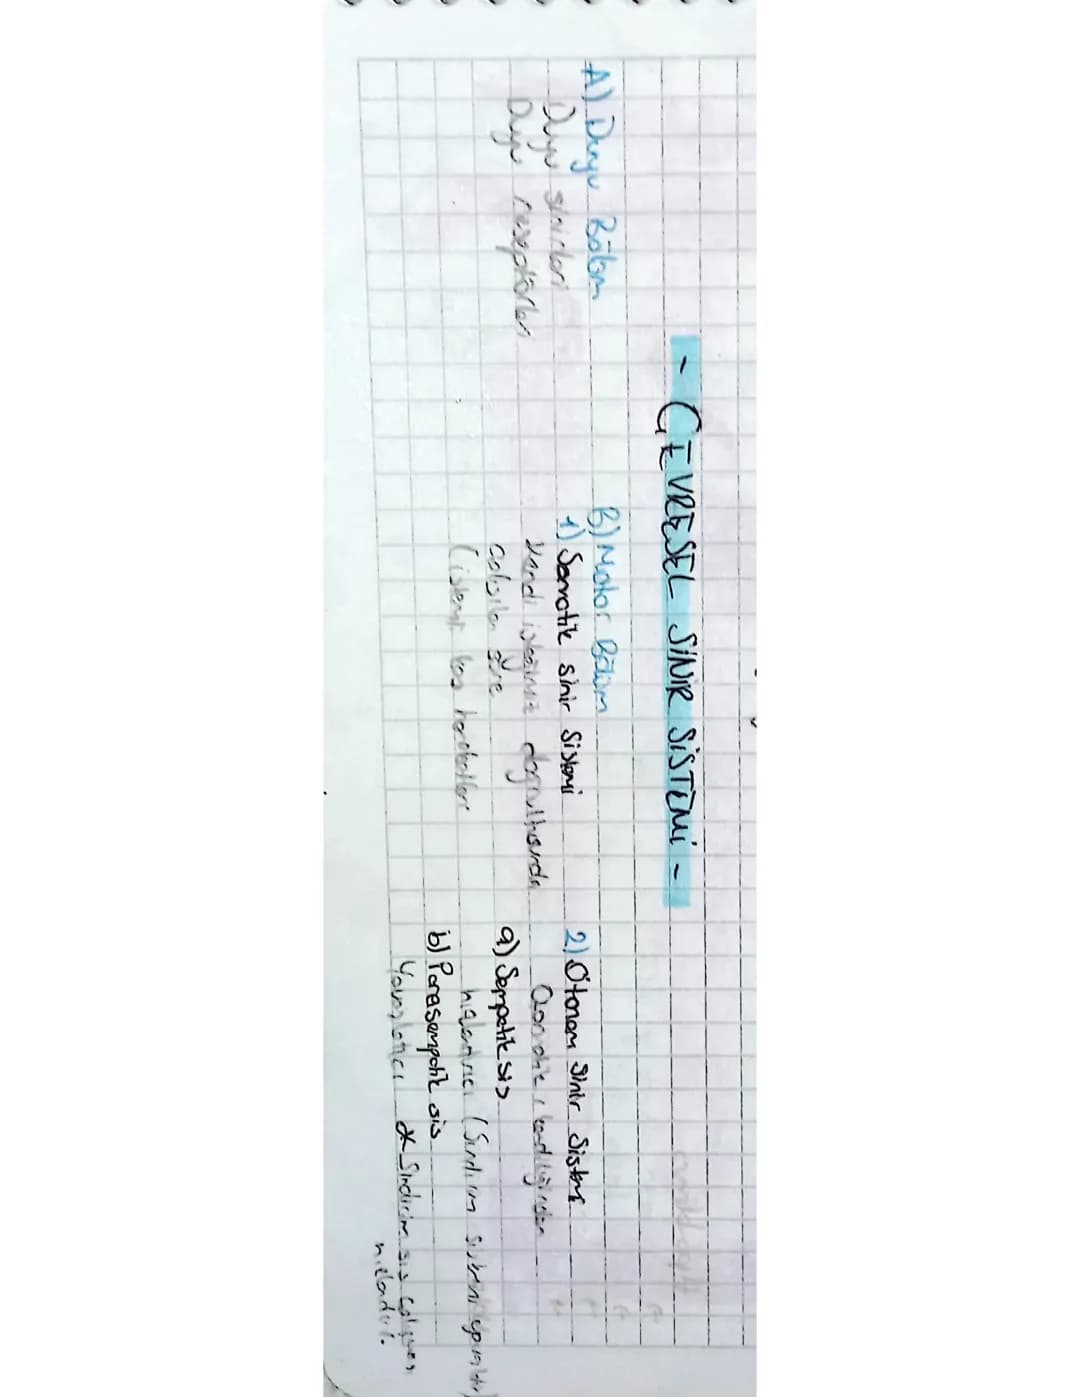 - ÇEVRESEL SİNİR SİSTEMİ -
A) Duyu Bölüm
Duyu sinirleri
Duyu reseptörleri
B) Motor Bölüm
1) Somatik sinir Sistemi
Kendi isteğimiz doğrultusunda
çalışılan
(istemli kas hareketleri
2) Otonom Sinir Sistemi
Otomatik, kendiliğinden
a) Sempatik sis
hızlandırıcı (Sindirim sistemi
b) Parasempatik sis
Yavaşlatıcı * Sindirim sis çalışması
hızlandırır.